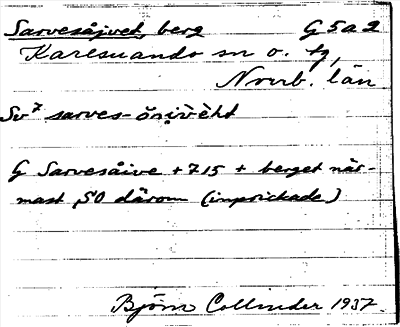 Sarvesåjvet, berg G 5 a 2
Karesuando sn o. tg,
Norrb. län
Sv⁷ sarves-
G Sarvesåive +715 + berget när-
mast SO därom (inprickade)
Björn Collinder 1937.